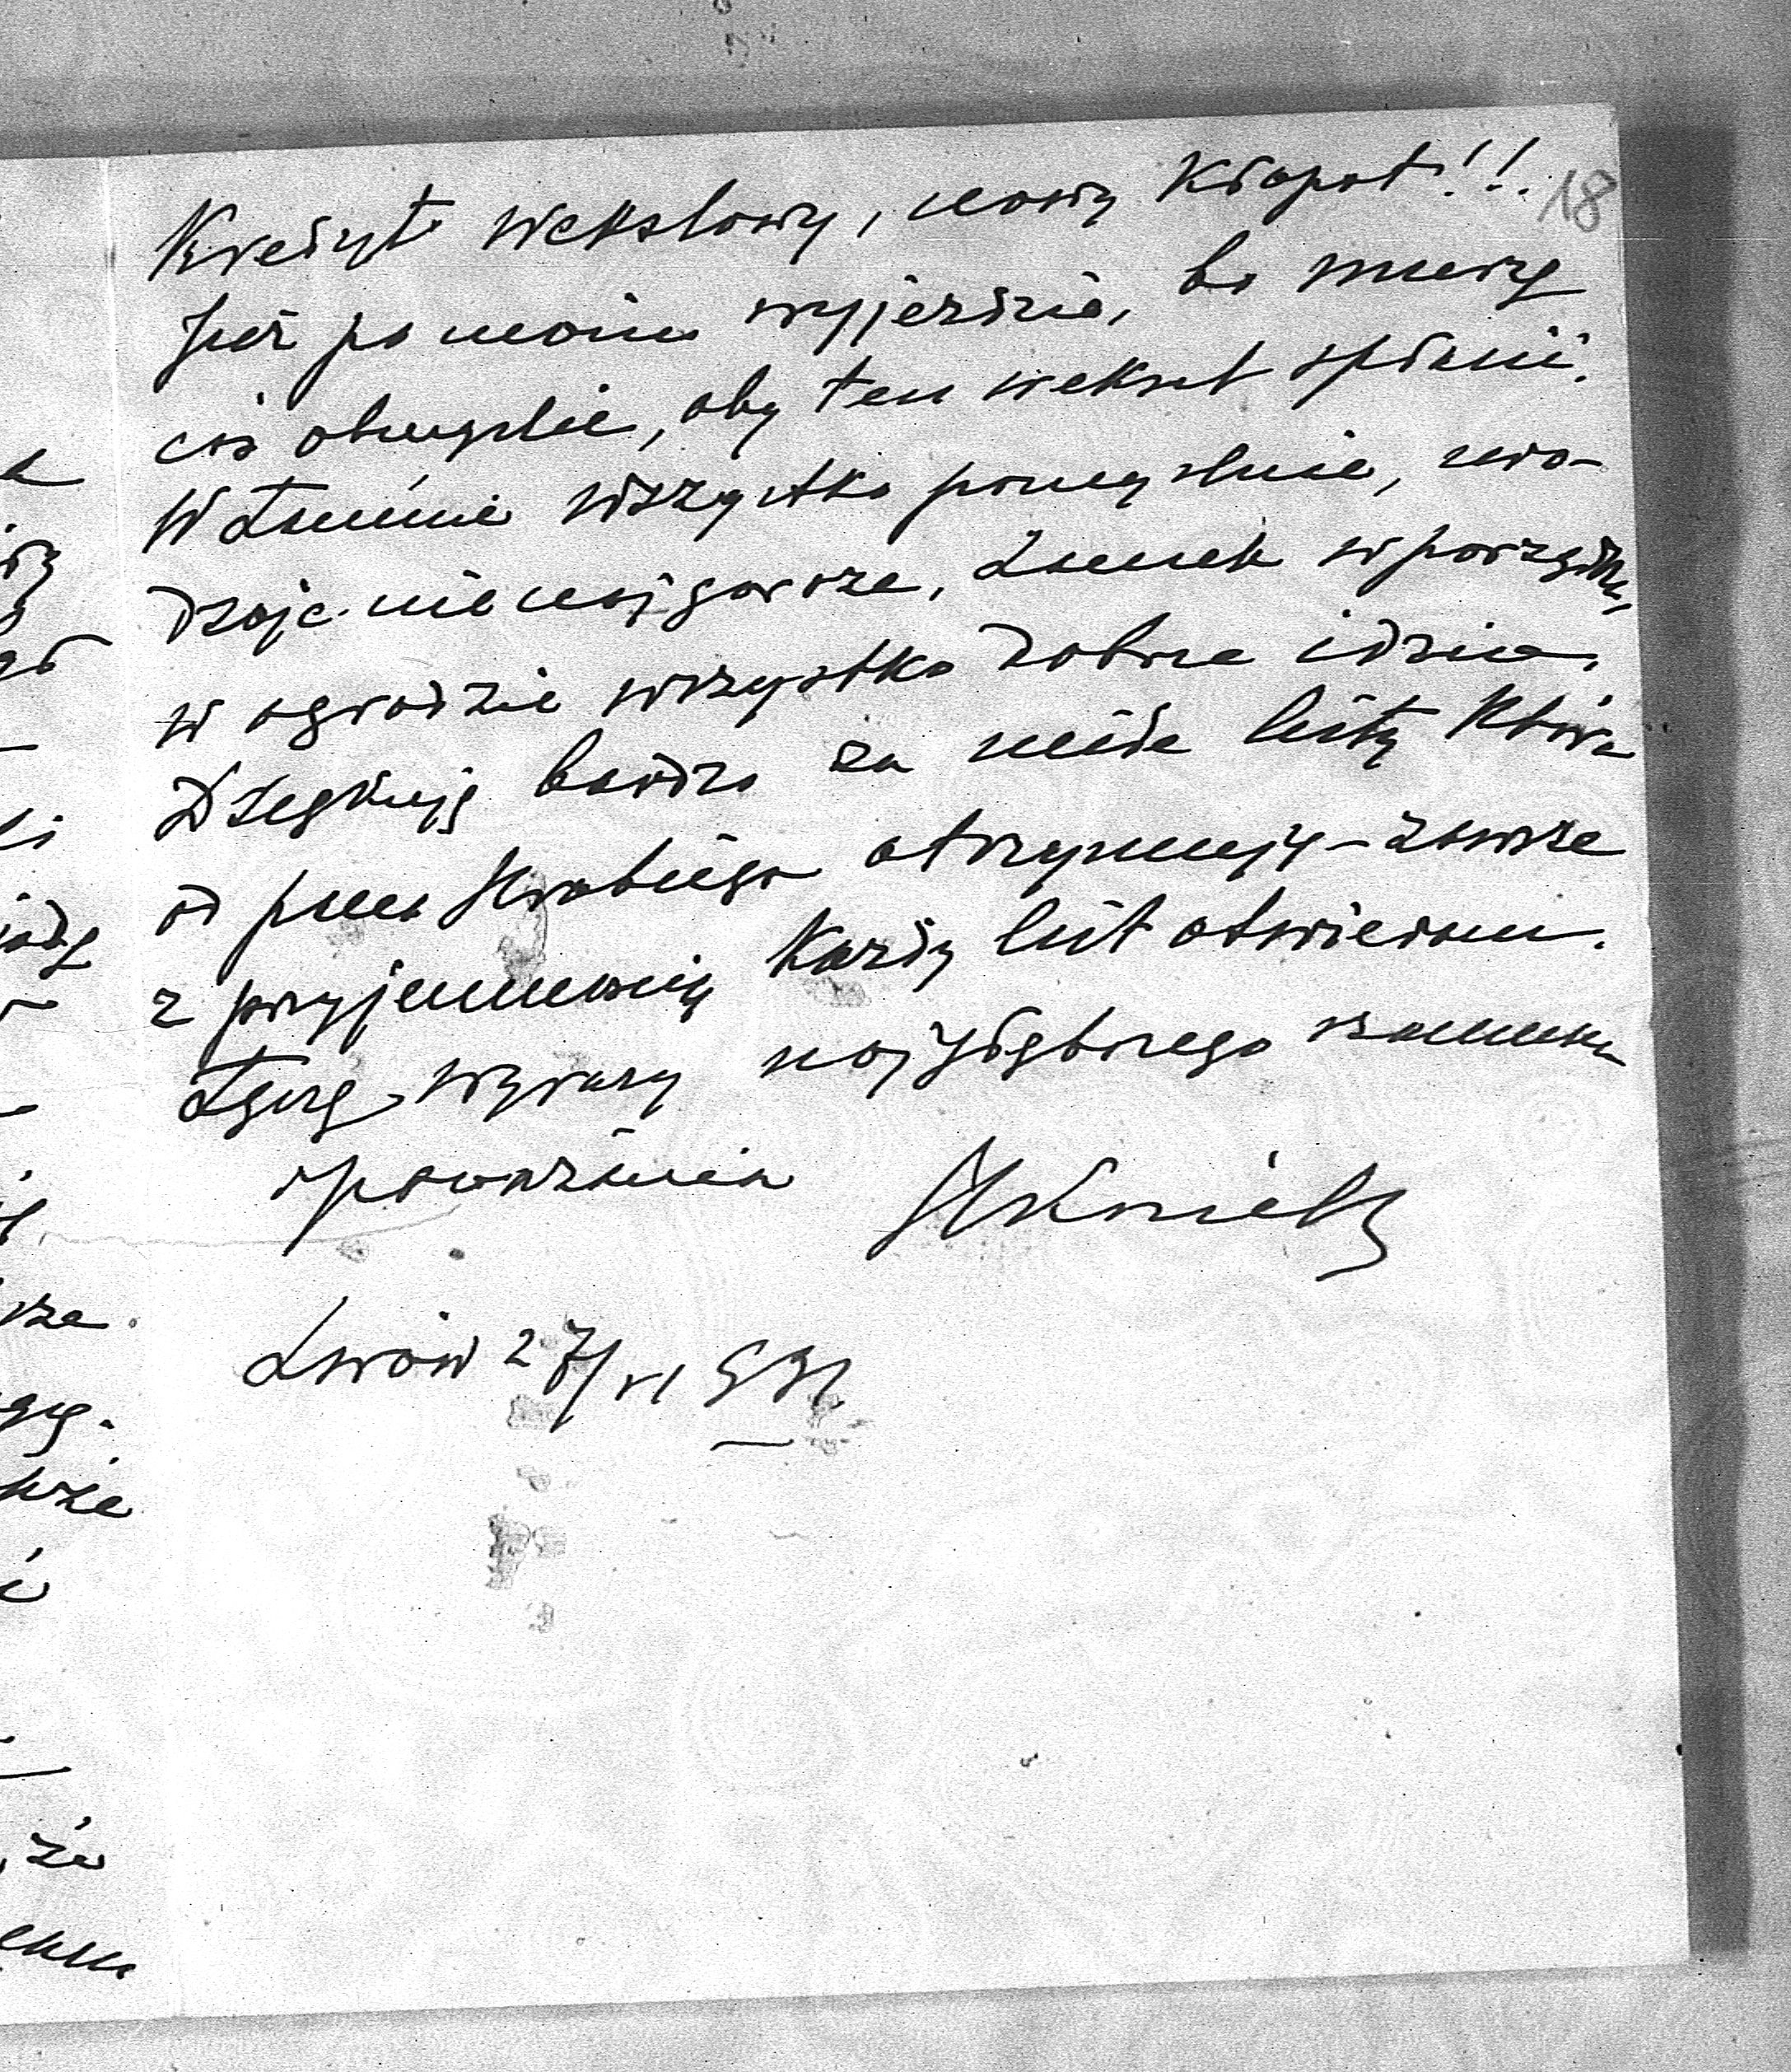 18
Kredyt wekslowy, nowy kłopot!!.
już po mnie wyjeżdżie, bo muszę
coś obmyślić, aby ten weksel spłacić.
W Łuninie wszystko pomyślnie, uro-
dzaje nie najgorsze, Zamek w porządku,
w ogrodzie wszystko dobrze idzie.
Dziękuję bardzo za miłe listy które
od pana Hrabiego otrzymuję – zawsze
z przyjemnością każdy list otwieram.
Łączę wyrazy najgłębszego szacunku
i poważania
Lwów 27/VI 931